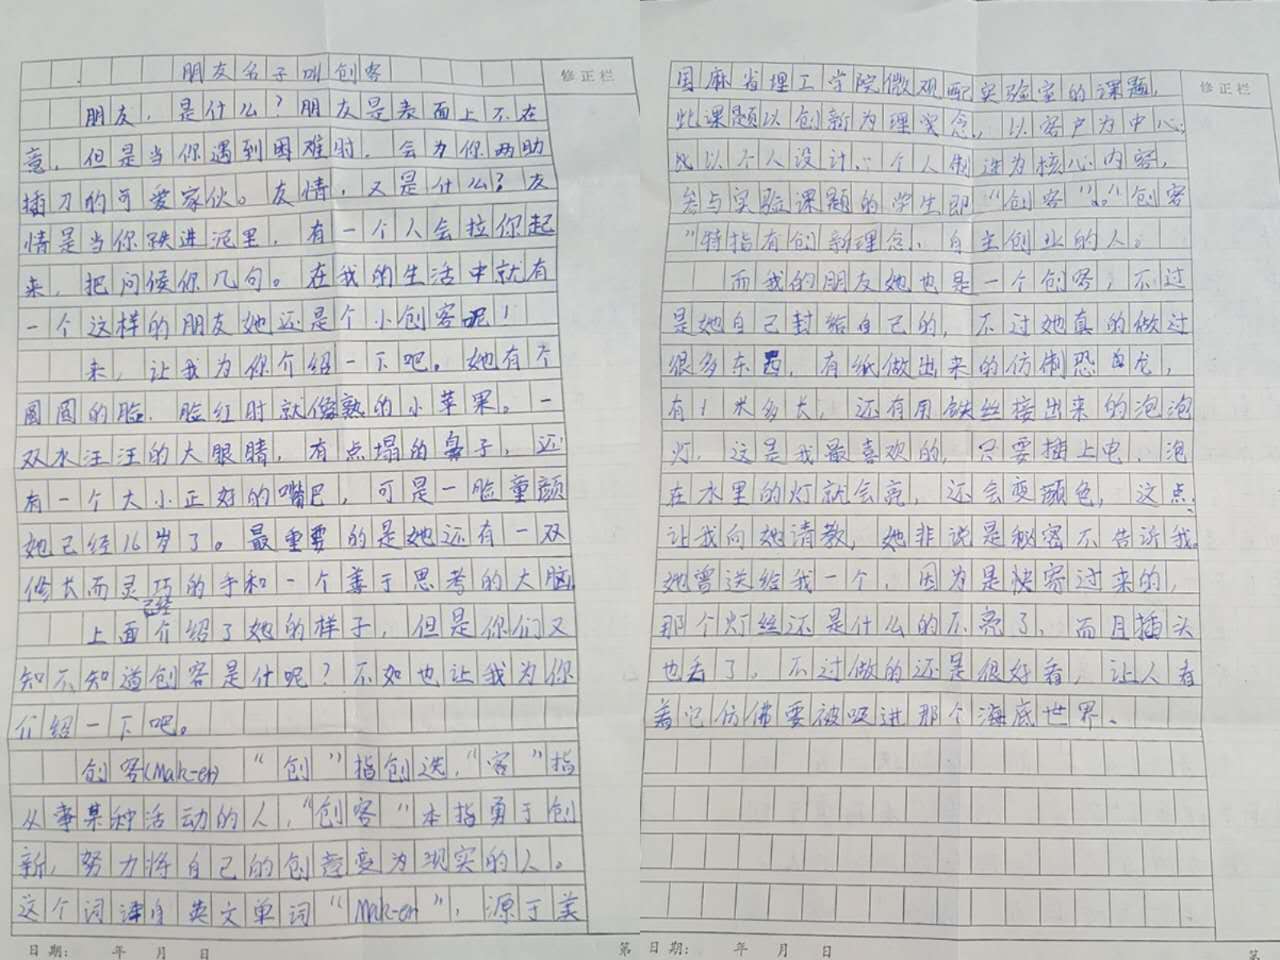 朋友名子叫创客
修正栏
朋友,是什么?朋友是表面上不在
意,但是当你遇到困难时,会为你两肋
插刀的可爱家伙。友情,又是什么?友
情是当你跌进泥里,有一个人会拉你起
来,把问候你几句。在我的生活中就有
一个这样的朋友她还是个小创客呢!
来,让我为你介绍一下吧。她有个
圆圆的脸,脸红时就像熟的小苹果。一
双水汪汪的大眼睛,有点塌的鼻子,还
有一个大小正好的嘴巴,可是一脸童颜
她已经16岁了。最重要的是她还有一双
修长而灵巧的手和一个善于思考的大脑。
已经
上面介绍了她的样子,但是你们又
知不知道创客是什呢?不如也让我为你
介绍一下吧。
创客(Mak-er)“创”指创造,“客”指
从事某种活动的人,“创客”本指勇于创
新,努力将自己的创意变为现实的人。
这个词译自英文单词“Mak-er”,源于美
日期: 年 月 日 第
国麻省理工学院微观配实验室的课题,
修正栏
此课题以创新为理念,以客户为中心,
以个人设计、个人制造为核心内容,
参与实验课题的学生即“创客”。“创客
”特指有创新理念、自主创业的人。
而我的朋友她也是一个创客,不过
是她自己封给自己的,不过她真的做过
很多东西,有纸做出来的仿制恐龙,
有1米多长,还有用铁丝接出来的泡泡
灯,这是我最喜欢的,只要插上电,泡
在水里的灯就会亮,还会变颜色,这点,
让我向她请教,她非说是秘密不告诉我。
她曾送给我一个,因为是快寄过来的,
那个灯丝还是什么的不亮了,而且插头
也丢了,不过做的还是很好看,让人看
着记仿佛要被吸进那个海底世界。
日期: 年 月 日 第